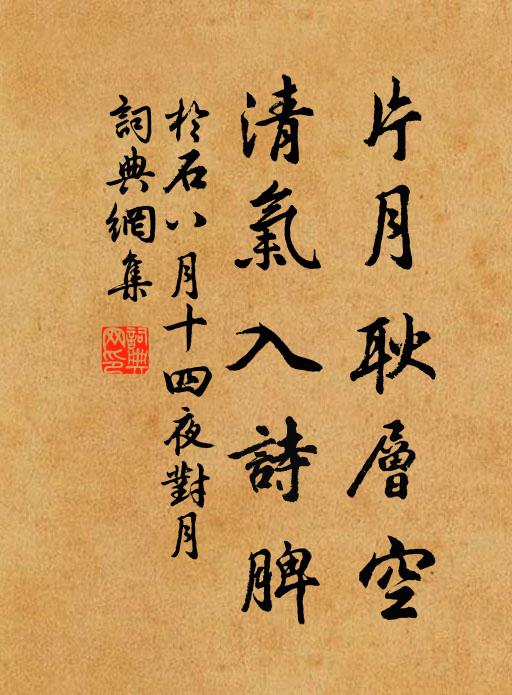 片月耿層空
清氣入詩脾
於石八月十四夜對月
詞典網集
詞典
网印